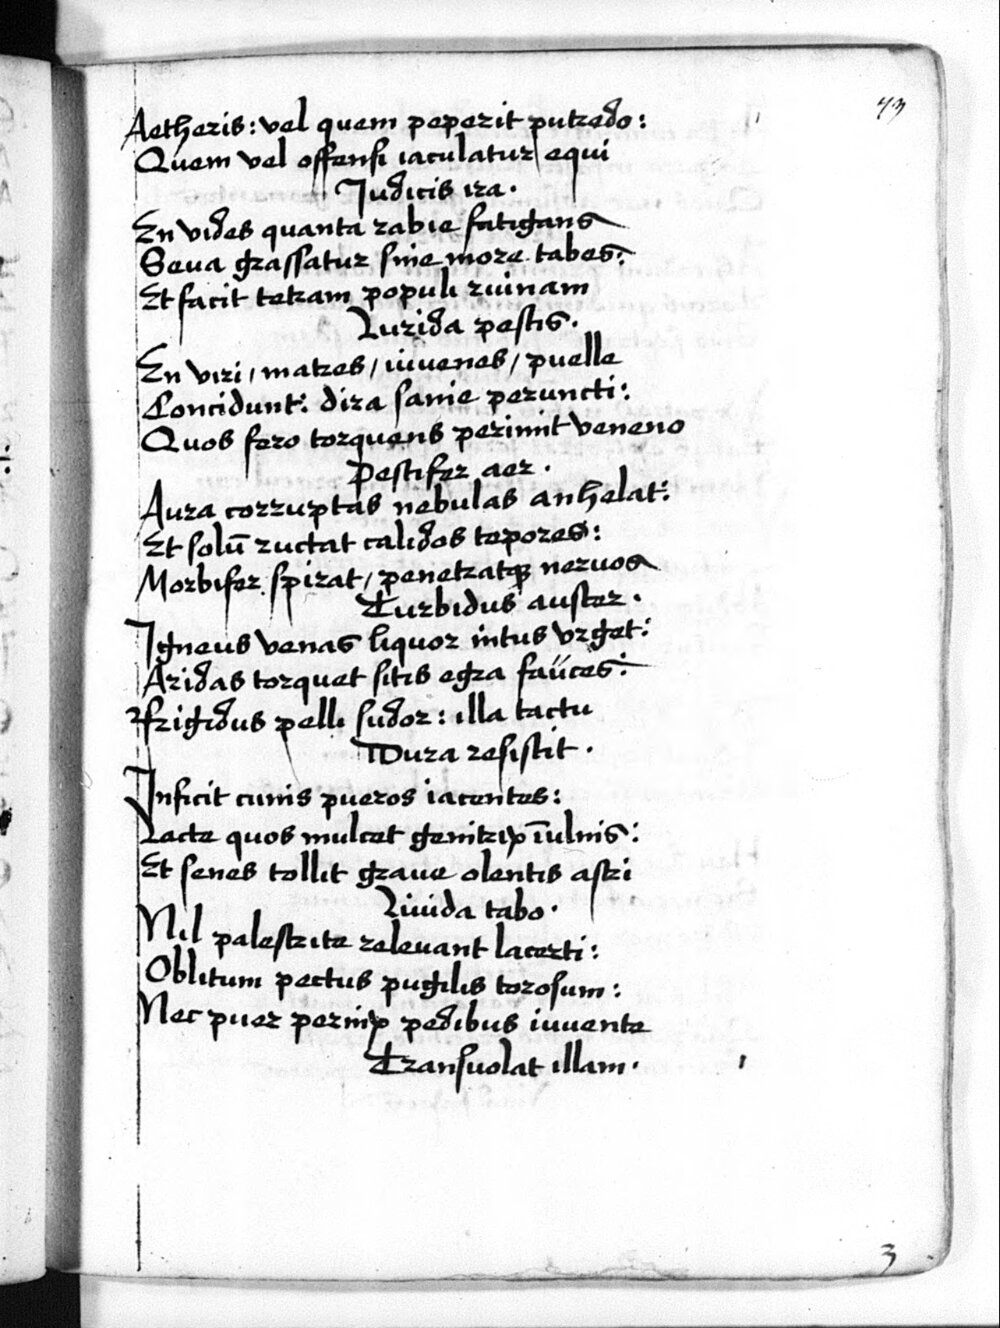 43
Aetheris: vel quem peperit putredo:
Quem vel offensi iaculatur equi
Judicis ira.
En vides quanta rabie fatigans
Seua grassatur sine more tabes:
Et facit tetram populi ruinam
Lurida pestis.
En viri / matres / iuuenes / puelle
Concidunt: dira sanie peruncti:
Quos fero torquens perimit veneno
Pestifer aer.
Aura corruptas nebulas anhelat:
Et solū ructat calidos tepores:
Morbifer spirat / penetratqꝫ neruos
Turbidus auster.
Igneus venas liquor intus vrget:
Aridas torquet sitis egra fauces:
Frigidus pelli sudor: illa tactu
Dura resistit.
Inficit cunis pueros iacentes:
Lacte quos mulcet genitrix ī vlnis:
Et senes tollit graue olentis astri
Liuida tabo.
Nil palestrite releuant lacerti:
Oblitum pectus pugilis torosum:
Nec puer pernix pedibus iuuente
Transuolat illam.
3